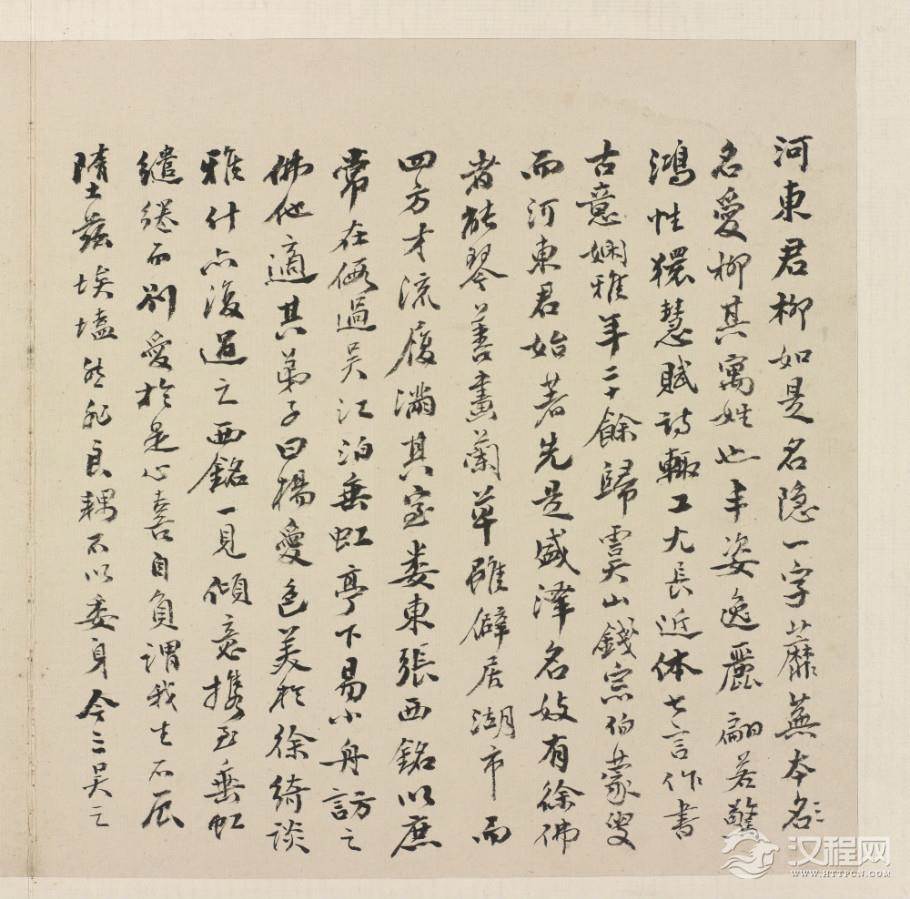 河東君柳如是名隱一字蘼蕪本名〻
名愛柳其寓姓也丰姿逸麗翩若驚
鴻性獧慧賦詩輙工尤長近体七言作書
古意嫻雅年二十餘歸虞山錢宗伯蒙叟
而河東君始著先是盛澤名妓有徐佛
者能琴善畫蘭草雖僻居湖市而
四方才流履滿其室婁東張西銘以庶
常在假過吳江泊垂虹亭下易小舟訪之
佛他適其弟子曰楊愛色美於徐綺談
雅什亦復過之西銘一見傾意携至垂虹
繾綣而別愛於是心喜自負謂我生不辰
墮土茲埃壒然非良耦不以委身今三吳之
汉程网
WWW.HTTPCN.COM